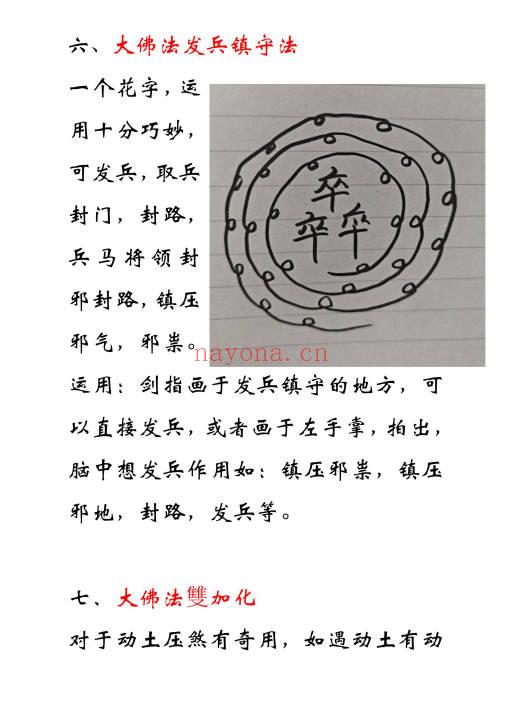 六、大佛法发兵镇守法
一个花字，运
用十分巧妙，
可发兵，取兵
封门，封路，
兵马将领封
邪封路，镇压
邪气，邪祟。
卒
卒卒
nayona.cn
运用：剑指画于发兵镇守的地方，可
以直接发兵，或者画于左手掌，拍出，
脑中想发兵作用如：镇压邪祟，镇压
邪地，封路，发兵等。
七、大佛法雙加化
对于动土压煞有奇用，如遇动土有动